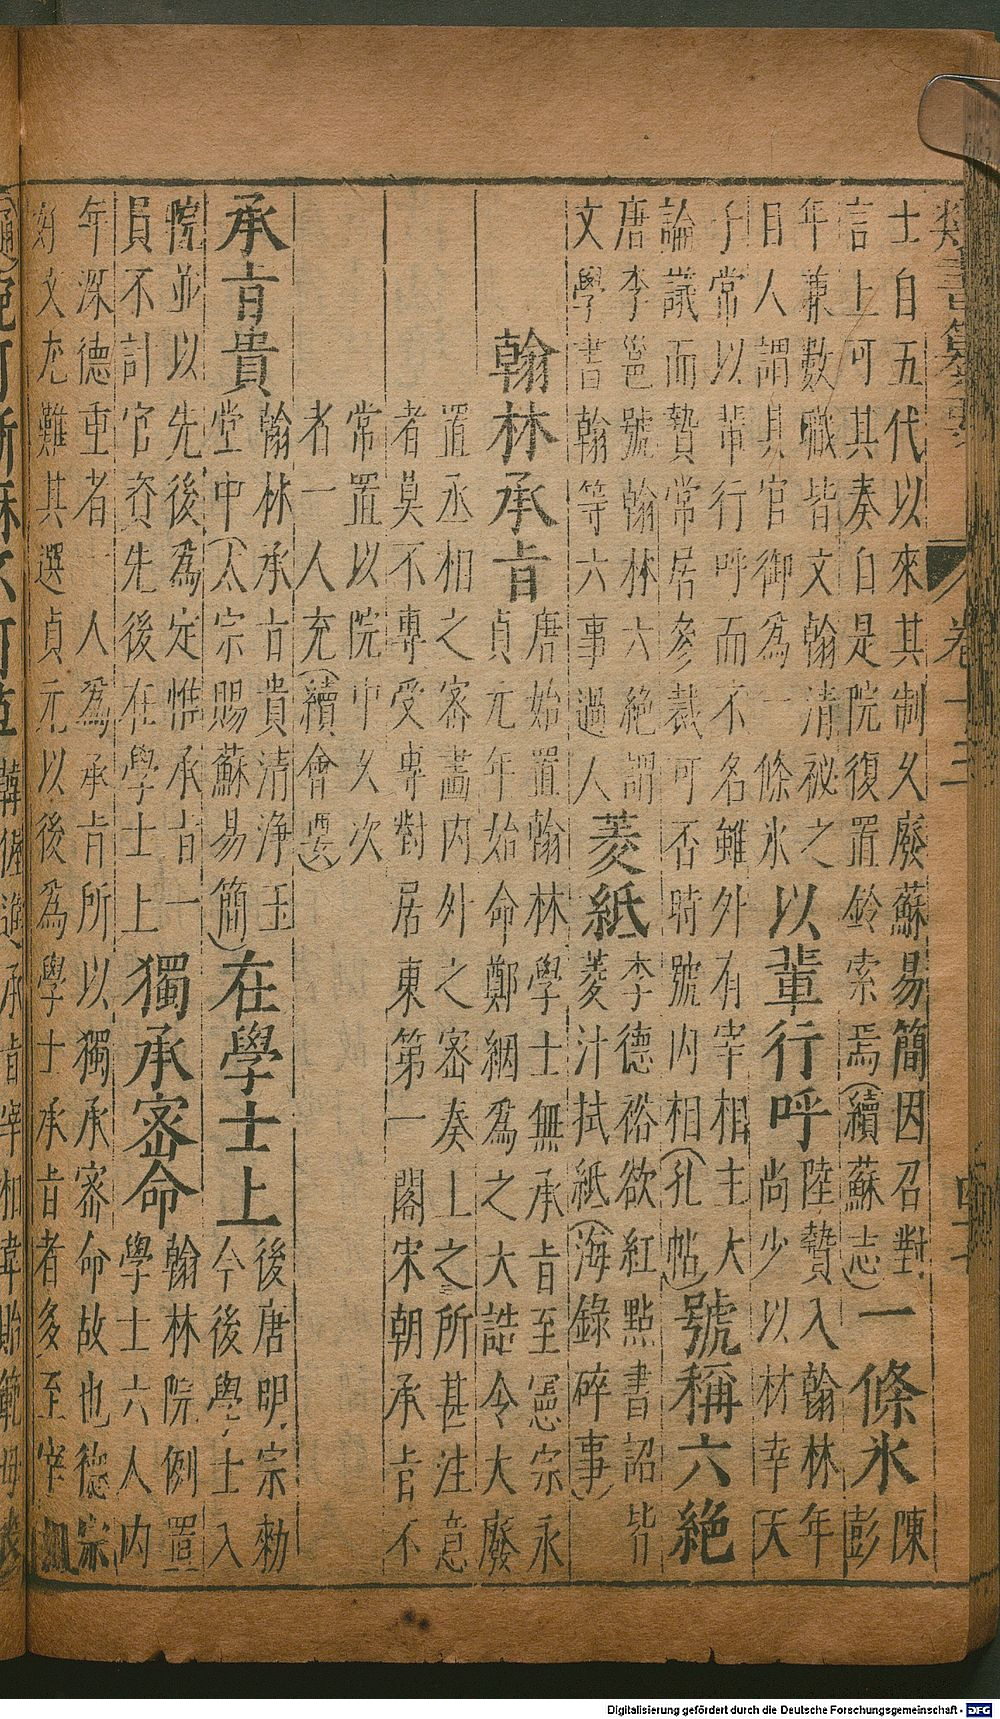 類書纂要 卷十三
士自五代以來其制久廢蘇易簡因召對
言上可其奏自是院復置鈴索焉(續蘇志)
一條氷
陳
彭
年兼數職皆文翰清祕之
目人謂具官御為一條氷
以輩行呼
陸贄入翰林年
尚少以材幸天
子常以輩行呼而不名雖外有宰相主大
論議而贄常居參裁可否時號內相(孔帖)
號稱六絕
唐李邕號翰林六絕謂
文學書翰等六事過人
菱紙
李德裕欲紅點書詔皆
菱汁拭紙(海錄碎事)
翰林承旨
唐始置翰林學士無承旨至憲宗永
貞元年始命鄭絪為之大誥令大廢
置丞相之密畫內外之密奏上之所甚注意
者莫不專受專對居東第一閣宋朝承旨不
常置以院中久次
者一人充(續會要)
承旨貴
翰林承旨貴清淨玉
堂中(太宗賜蘇易簡)
在學士上
後唐明宗勅
今後學士入
院並以先後為定惟承旨一
員不計官資先後在學士上
獨承密命
翰林院例置
學士六人內
年深德重者一人為承旨所以獨承密命故也德宗
好文尤難其選貞元以後為學士承旨者多至宰相
腕可斷麻不可草
韓偓進承旨宰相韋貽範母喪
Digitalisierung gefördert durch die Deutsche Forschungsgemeinschaft - DFG